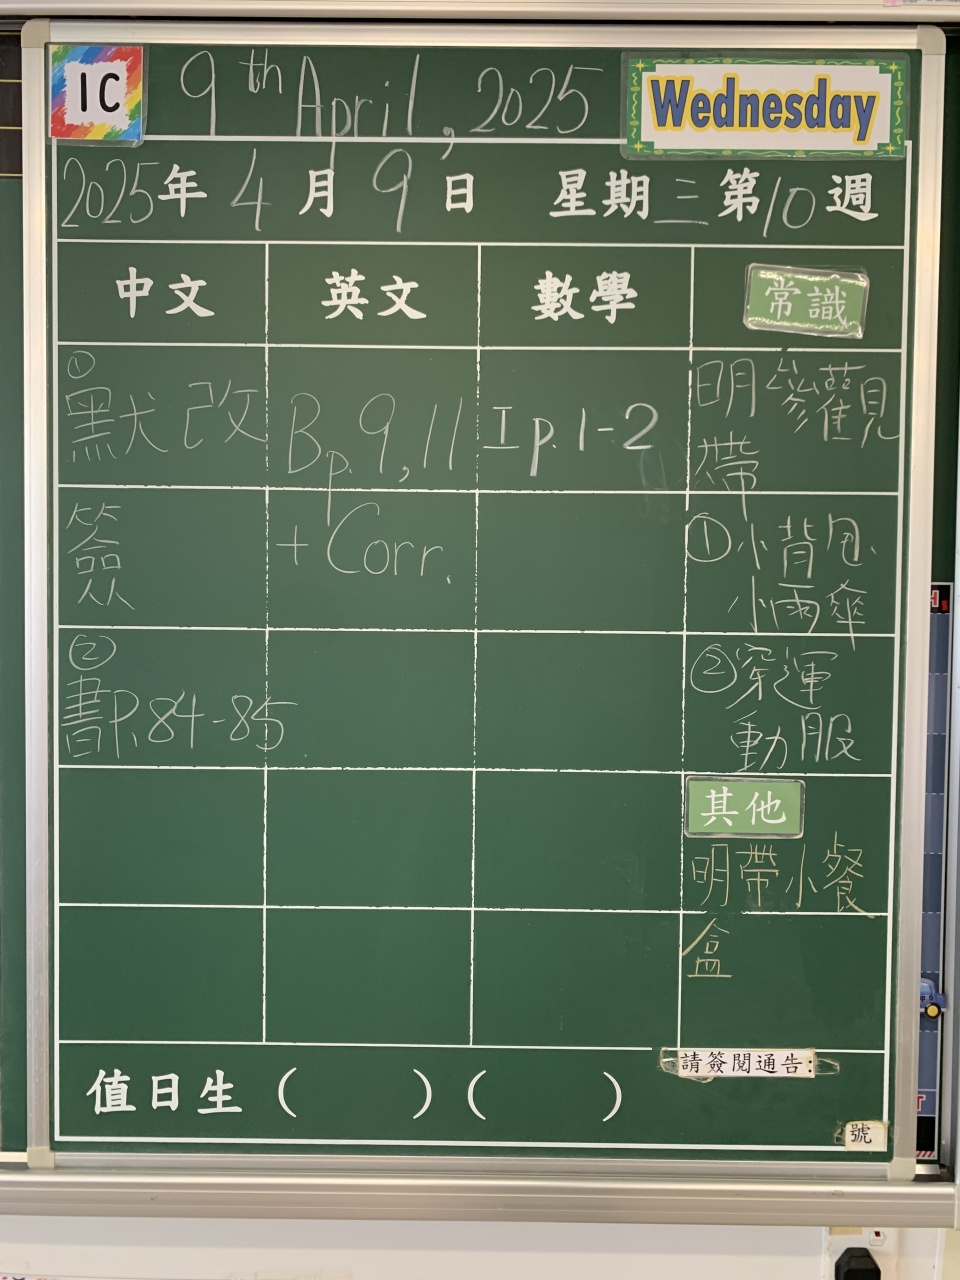 1C
9th April, 2025
Wednesday
2025年4月9日 星期三第10週
中文 英文 數學 常識
①
默改
簽
②
書P.84-85
Bp.9,11
+ Corr.
I p.1-2
明參觀
帶
①小背包、
小雨傘
②穿運
動服
其他
明帶小餐
盒
請簽閱通告:
值日生 ( ) ( )
號